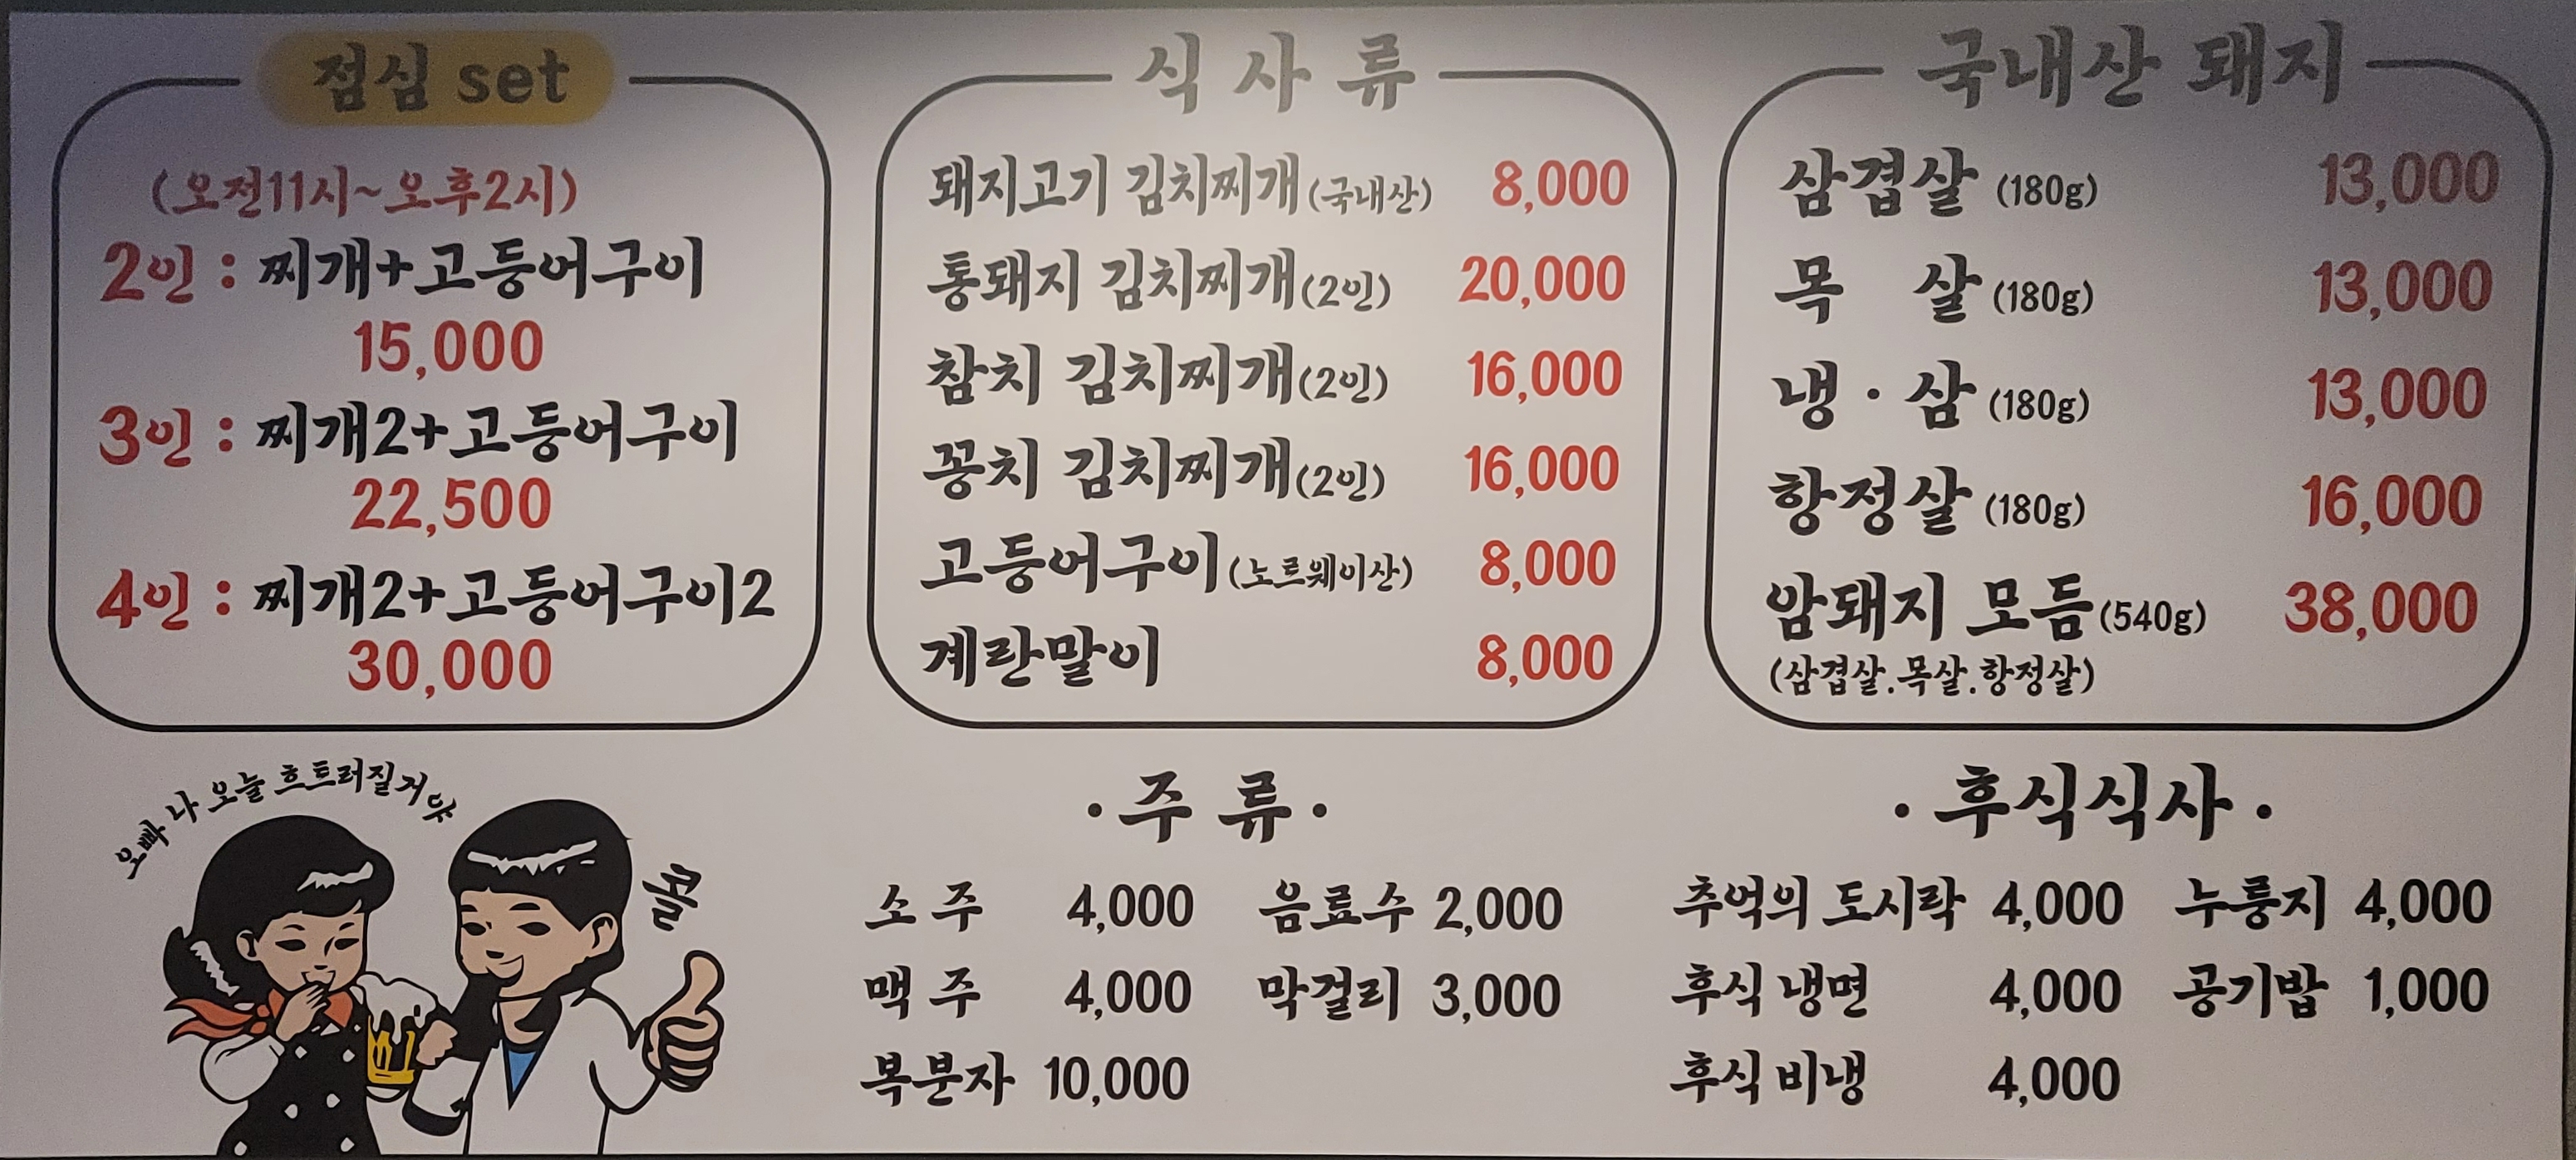 점심 set
(오전11시~오후2시)
2인 : 찌개+고등어구이
15,000
3인 : 찌개2+고등어구이
22,500
4인 : 찌개2+고등어구이2
30,000
식 사 류
돼지고기 김치찌개(국내산) 8,000
통돼지 김치찌개(2인) 20,000
참치 김치찌개(2인) 16,000
꽁치 김치찌개(2인) 16,000
고등어구이(노르웨이산) 8,000
계란말이 8,000
국내산 돼지
삼겹살 (180g) 13,000
목 살 (180g) 13,000
냉·삼 (180g) 13,000
항정살 (180g) 16,000
암돼지 모듬(540g) 38,000
(삼겹살.목살.항정살)
오빠 나 오늘 흐트러질거유
콜
·주 류·
소 주 4,000 음료수 2,000
맥 주 4,000 막걸리 3,000
복분자 10,000
·후식식사·
추억의 도시락 4,000 누룽지 4,000
후식 냉면 4,000 공기밥 1,000
후식 비냉 4,000